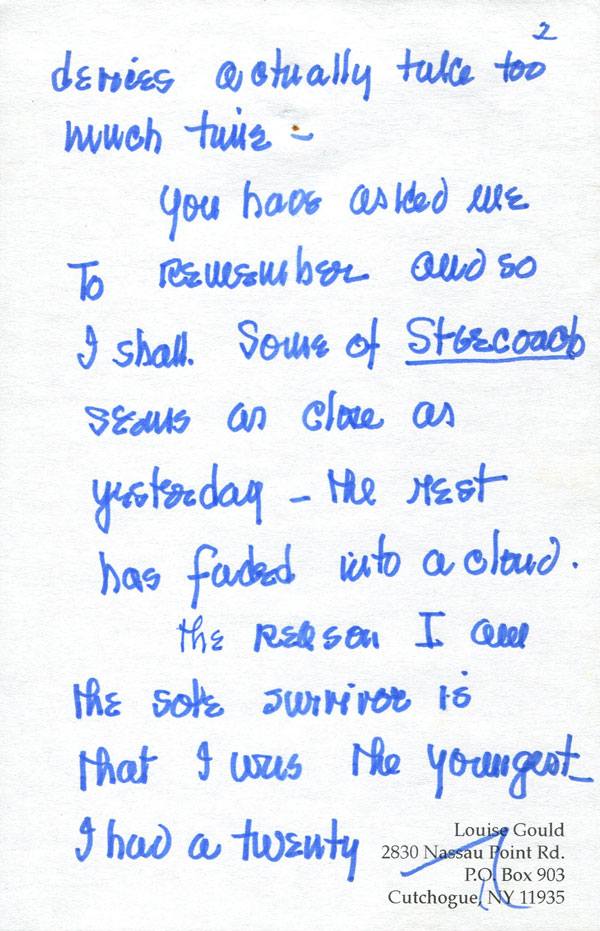 2
denies actually take too
much time –
You have asked me
To remember and so
I shall. Some of Stagecoach
seems as close as
yesterday – the rest
has faded into a cloud.
the reason I am
the sole survivor is
that I was the youngest
I had a twenty
Louise Gould
2830 Nassau Point Rd.
P.O. Box 903
Cutchogue, NY 11935